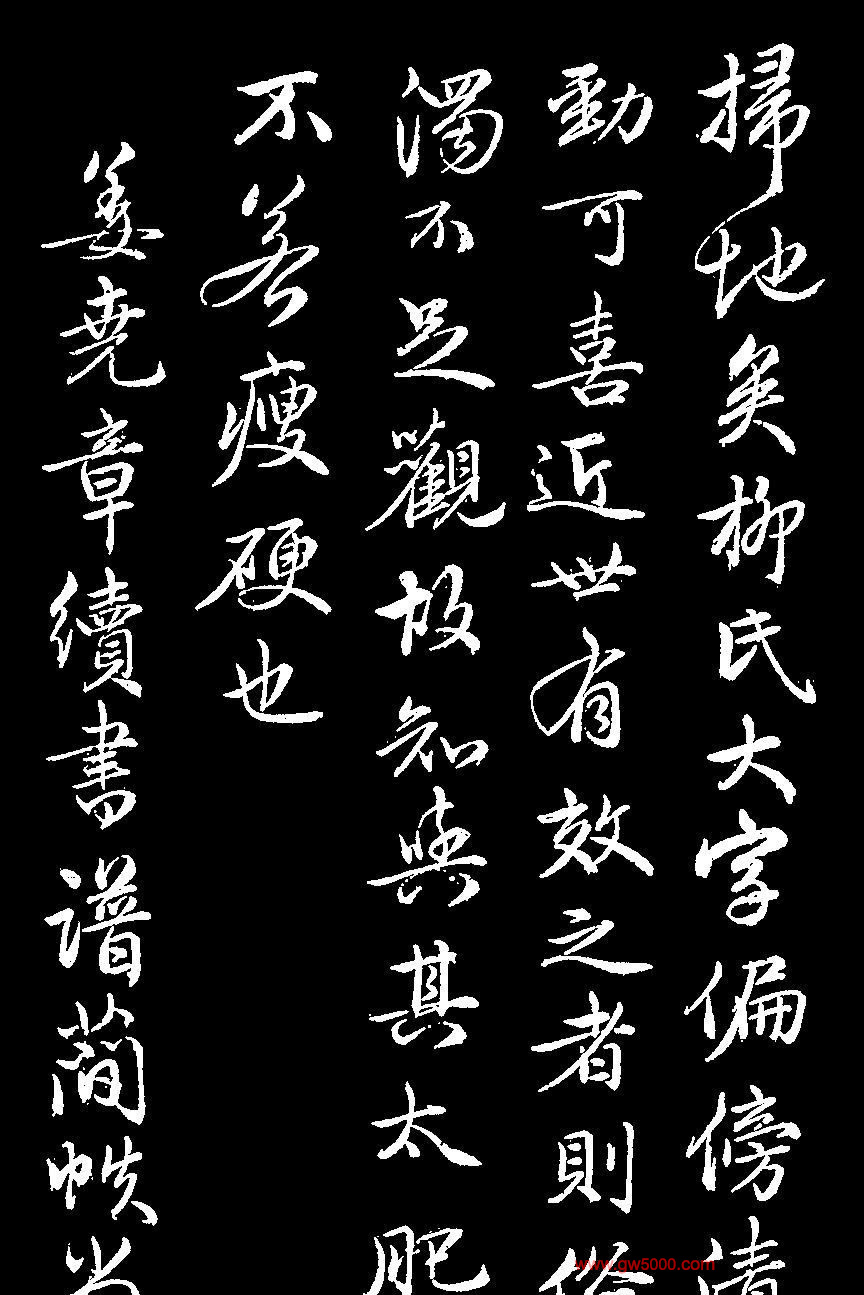 掃地矣柳氏大字偏傍清
勁可喜近世有效之者則俗
濁不足觀故知與其太肥
不若瘦硬也
姜堯章續書譜簡帙當
www.gw5000.com